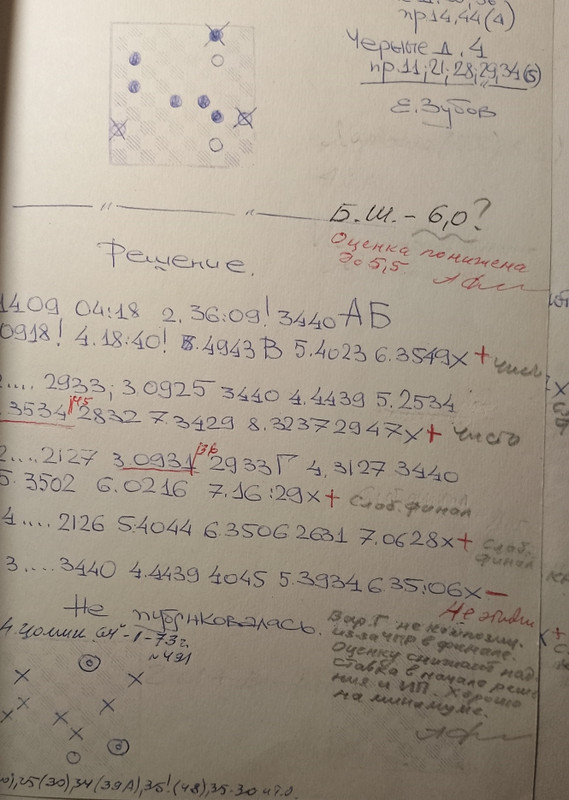 пр 14, 44 (4)
Черные д. 4
пр. 11; 21; 28; 29, 34 (5)
Е. Зубов
Б.Ш. – 6,0?
Оценка понижена
до 5,5
Решение.
1409 04:18 2. 36:09! 3440 АБ
0918! 4. 18:40! 4943 В 5. 4023 6. 3549х + чисто
2.... 2933; 3. 0925 3440 4. 4439 5. 2534
3534 |45 2832 7. 3429 8. 3237 2947х + чисто
2.... 2127 3. 0931 |36 2933 Г 4. 3127 3440
5. 3502 6. 0216 7. 16:29х + слаб. финал
4.... 2126 5. 4044 6. 3506 2631 7. 0628х + слаб. финал
3.... 3440 4. 4439 4045 5. 3934 6. 35:06х –
Не публиковалась.
Вар. Г не композиц.
из-за ЧПР в финале.
Оценку снижает под-
ставка в начале реше-
ния и ИП. Хорошо
на минимуме.
-1-73 г.
№ 491
25(30), 34(39А), 35! (48), 35-30 и т.д.